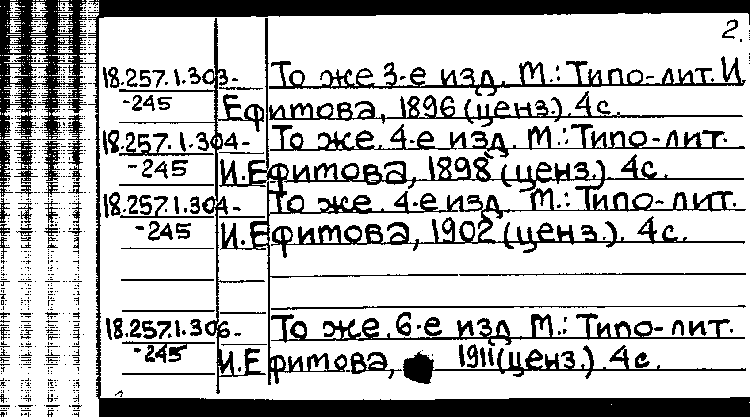 2.
18.257.1.303- То же 3-е изд. М.: Типо-лит. И
-245 Ефитова, 1896 (ценз). 4с.
18.257.1.304- То же. 4-е изд. М.: Типо-лит.
-245 И. Ефитова, 1898 (ценз.) 4с.
18.257.1.304- То же. 4-е изд. М.: Типо-лит.
-245 И. Ефитова, 1902 (ценз.). 4с.
18.257.1.306- То же. 6-е изд. М.: Типо-лит.
-245 И. Ефитова, 1911 (ценз.). 4с.